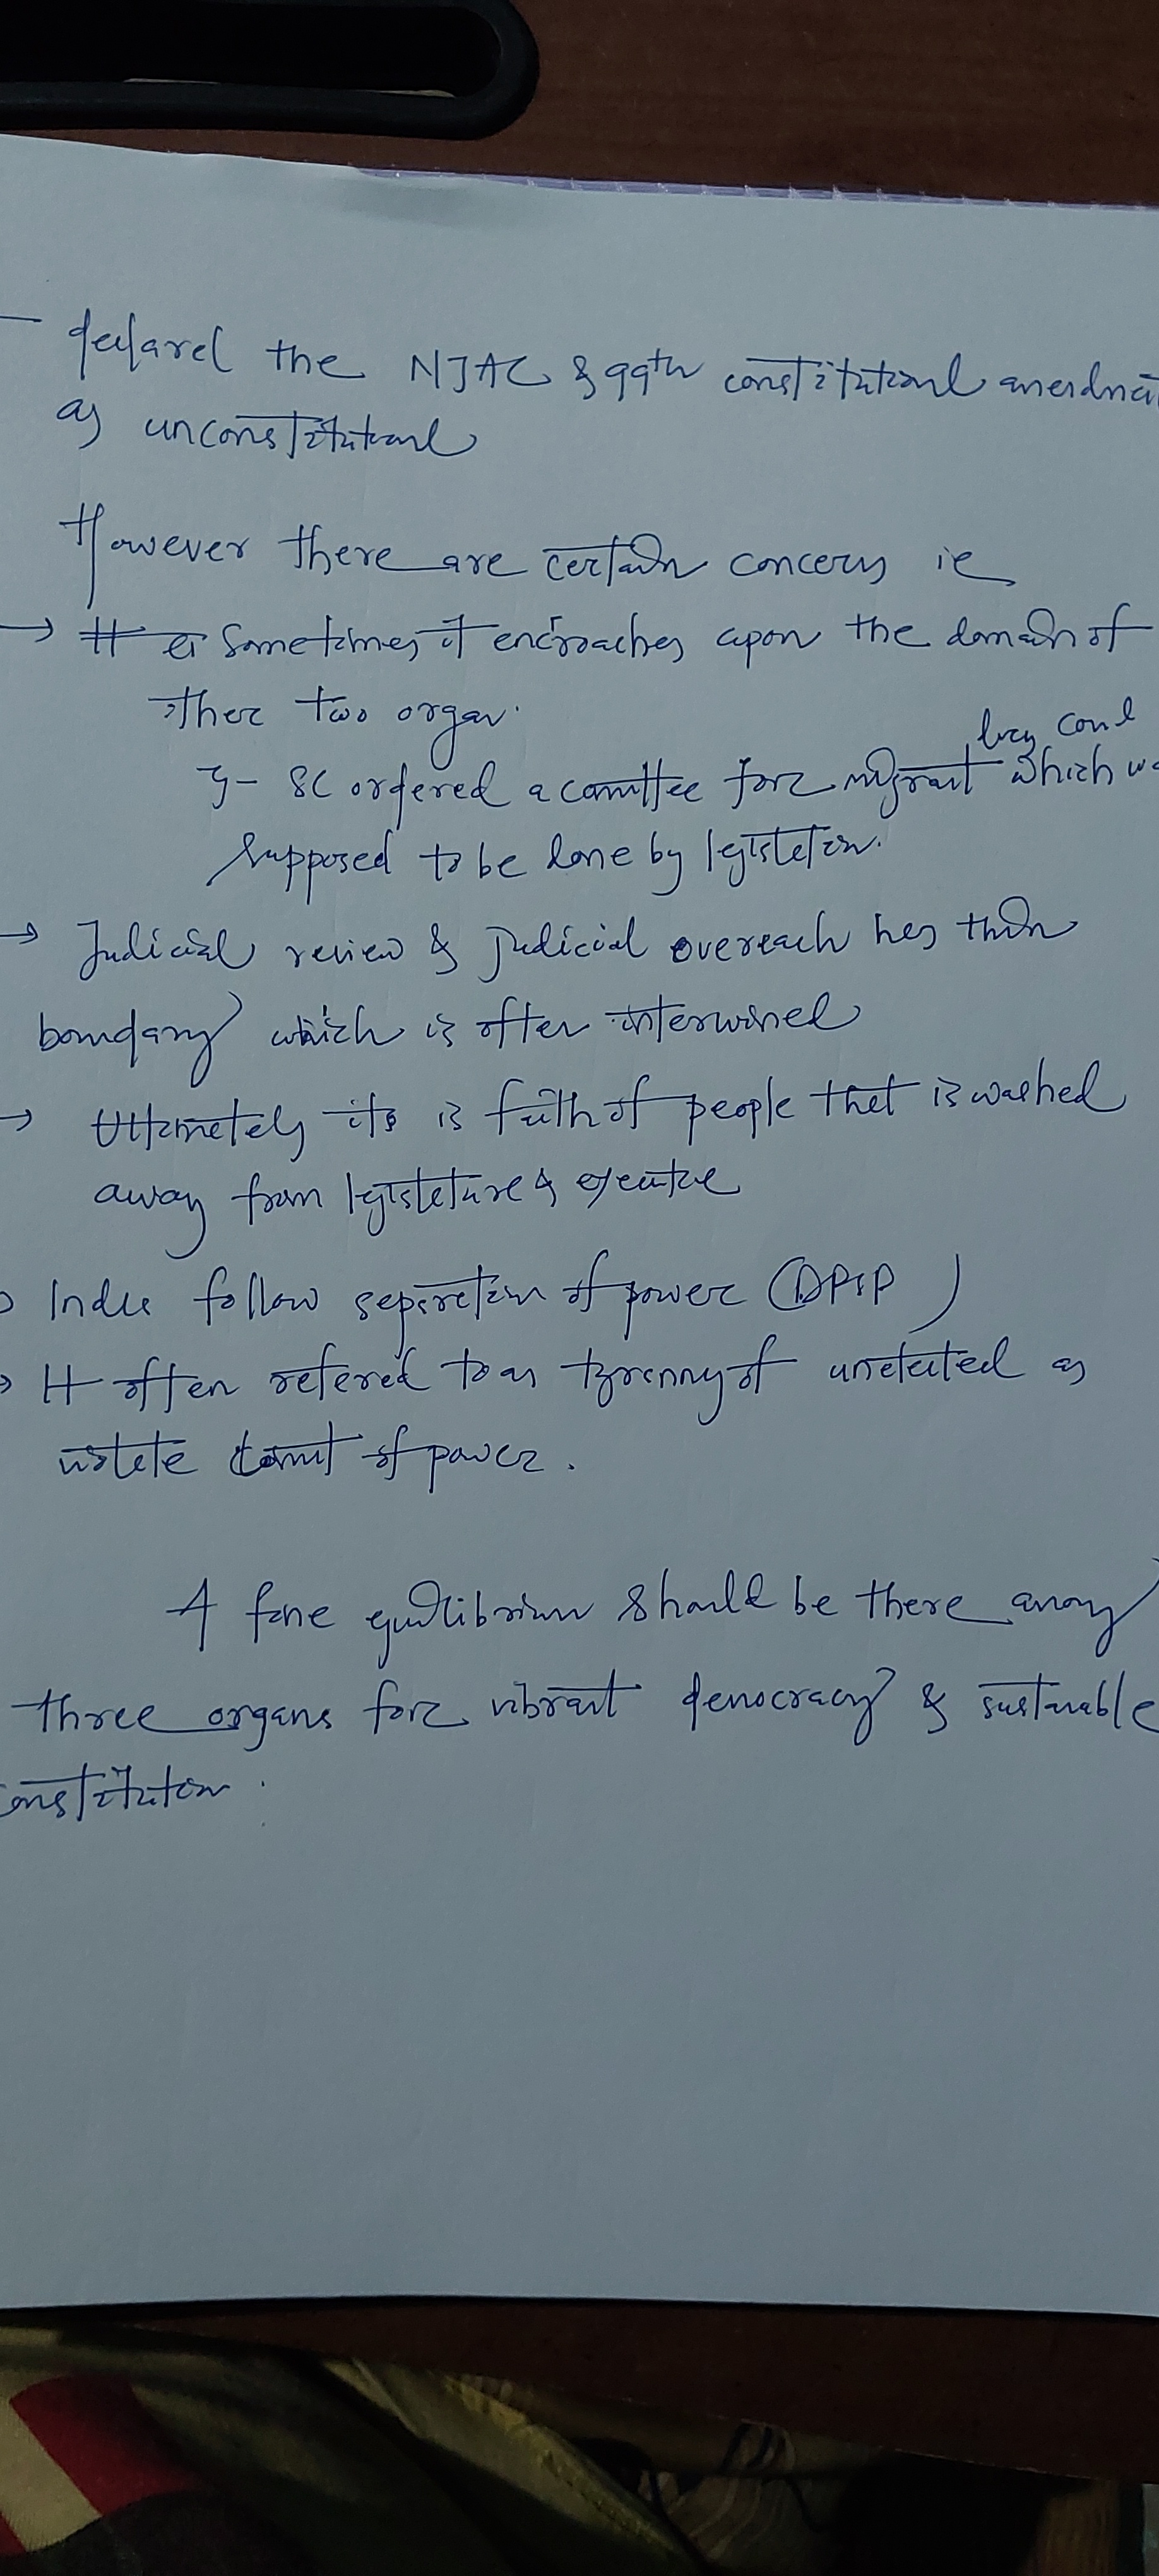 - declared the NJAC & 99th constitutional amendment
as unconstitutional
However there are certain concerns ie
→ Sometimes it encroaches upon the domain of
other two organ.
SC ordered a committee for migrant which wa
supposed to be done by
→ Judicial review & judicial overeach has thin
boundary which is often interwined
→ Ultimately its is faith of people that is washed
away from legislature & executive
India follow separation of power (DPSP)
→ It often refered to as tyranny of unelected as
of power.
A fine equilibrium should be there among
three organs for vibrant democracy & sustainable
constitution.